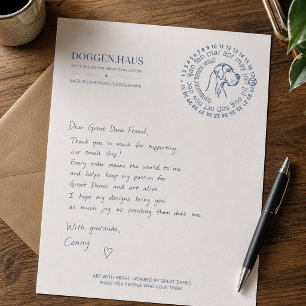 DOGGEN.HAUS
ART & DESIGN FOR GREAT DANE LOVERS
ZAZZLE.COM/STORE/DOGGENHAUS
jan feb mar apr may jun jul aug sep oct nov dec
Dear Great Dane Friend,
Thank you so much for supporting
our small shop!
Every order means the world to me
and helps keep my passion for
Great Danes and art alive.
I hope my designs bring you
as much joy as creating them does me.
With gratitude,
Conny
ART WITH HEART. INSPIRED BY GREAT DANES.
MADE FOR PEOPLE WHO LOVE THEM.